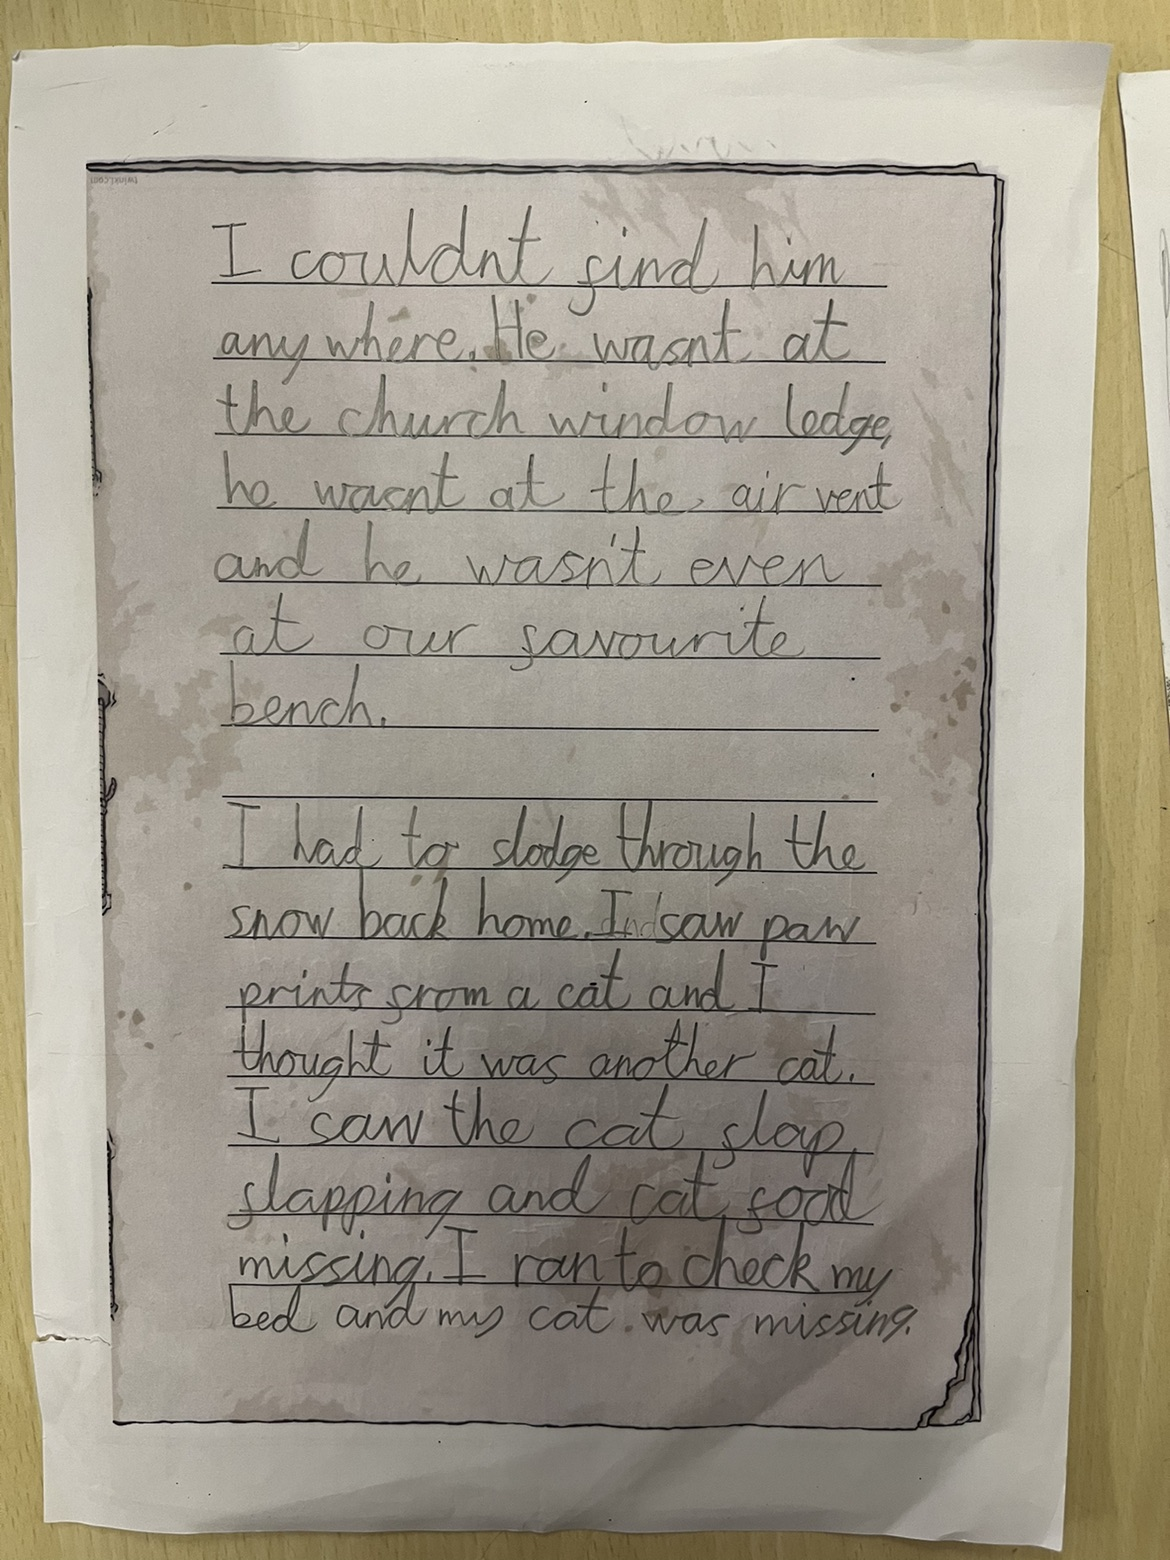 twinkl.com
I couldnt find him
anywhere. He wasnt at
the church window ledge,
he wasnt at the air vent
and he wasn't even
at our favourite
bench.
I had to slodge through the
snow back home. I saw paw
prints from a cat and I
thought it was another cat.
I saw the cat flap
flapping and cat food
missing. I ran to check my
bed and my cat was missing.